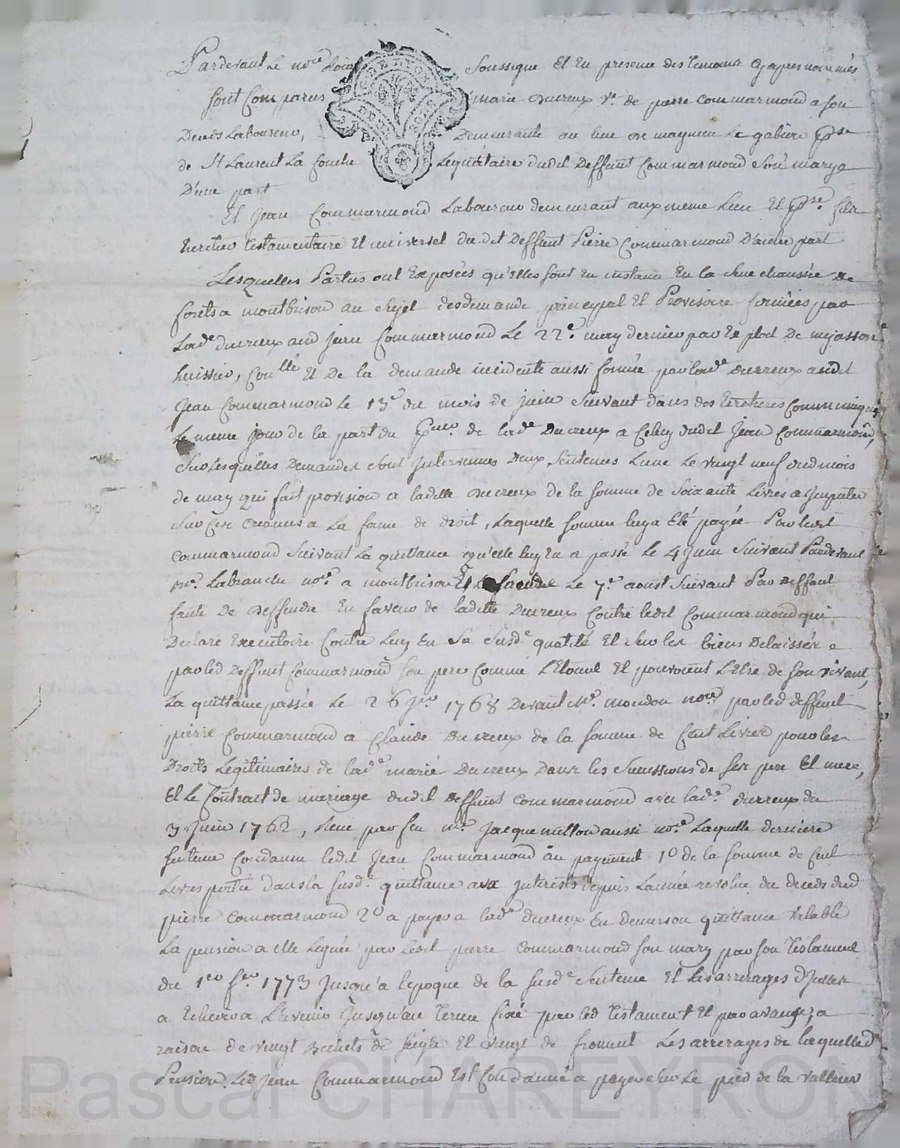 Pardevant Le no.re Roial Soussigne Et En presence des temoins cy apres nommés
Sont Comparus marie ducreux v.e de pierre commarmond a son
Deces Laboureur, Demeurante au lieu de magneu Le gabion p.sse
de St Laurent La Conche Légataire dudit Deffunt Commarmond Son mary
D'une part
Et Jean Commarmond Laboureur demeurant aux meme Lieu Et p.sse fils
heritier testamentaire Et universel du dit Deffunt Pierre Commarmond D'autre part
Lesquelles Parties ont Exposées qu'elles sont En instance En la Senechaussée de
forets a montbrison au sujet des demande principal Et Provisoire formées par
Lad.e ducreux aud jean Commarmond Le 22.e may dernier par Exploit De mijasson
huissier, Con.llé Et De la demande incidente aussi formée par lad.e ducreux audit
Jean Commarmond Le 13.e du mois de juin Suivant dans des Ecritures Communiquées
Le meme jour de la part du p.eur de lad.e Ducreux a Celuy dudit Jean Commarmond,
Sur Lesquelles Demandes sont Intervenues Deux Sentences L'une Le vingt neuf dud mois
de may qui fait provision a ladite ducreux de la somme de Soixante Livres a Imputer
Sur Ses Creances a La forme de droit, Laquelle somme luy a Eté payée Par ledit
Commarmond Suivant La quittance qu'elle luy En a passé Le 4 juin Suivant Pardevant
M.e Labranche no.re a montbrison Et La seconde Le 7.e aoust Suivant Par deffaut
faute de Deffendre En faveur de ladite Ducreux Contre ledit Commarmond qui
Declare Executoire Contre Luy En Sa Susd.e qualité Et Sur les biens Delaissés
par led Deffunt Commarmond Son pere Comme L'Etoient Et pouvoient L'Etre de son vivant,
La quittance passée Le 26 1768 Devant M.e mondon no.re par led deffunt
pierre Commarmond a Claude Ducreux de la somme de Cent Livres pour les
Droits Legitimaires de lad.e marie Ducreux Dans les Successions de ses pere Et mere,
Et Le Contrat de mariage dudit deffunt Commarmond avec lad.e ducreux du
3 juin 1762, Reçu par feu M.e Jacque mitton aussi no.re Laquelle derniere
Sentence Condamne ledit Jean Commarmond au payement 1.o de la somme de Cent
Livres portée dans la Susd.e quittance aux Interests depuis L'année revolue du deceds dud
pierre Commarmond 2.o a payer a lad.e ducreux En deniers ou quittance valable
La pension a Elle Leguée par ledit pierre Commarmond Son mary par Son Testament
du 1.er f.er 1773 jusqu'a L'epoque de la Susd.e Sentence Et Les arrerages d'Icelle
a Echeoir a L'avenir Jusqu'au Terme fixé par led Testament Et par avance, a
raison de vingt Bichets de Seigle Et vingt de froment Les arrerages de Laquelle
Pension Led jean Commarmond Est Condamné a payer Sur Le pied de la Valleur
Pascal CHAREYRON